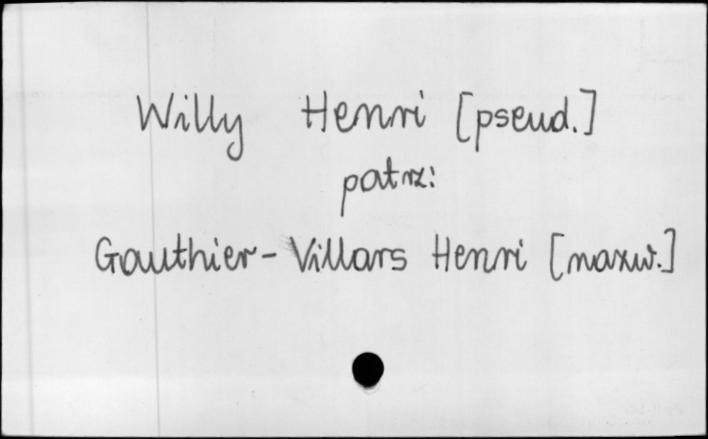 Willy Henri [pseud.]
patrz:
Gauthier-Villars Henri [nazw.]